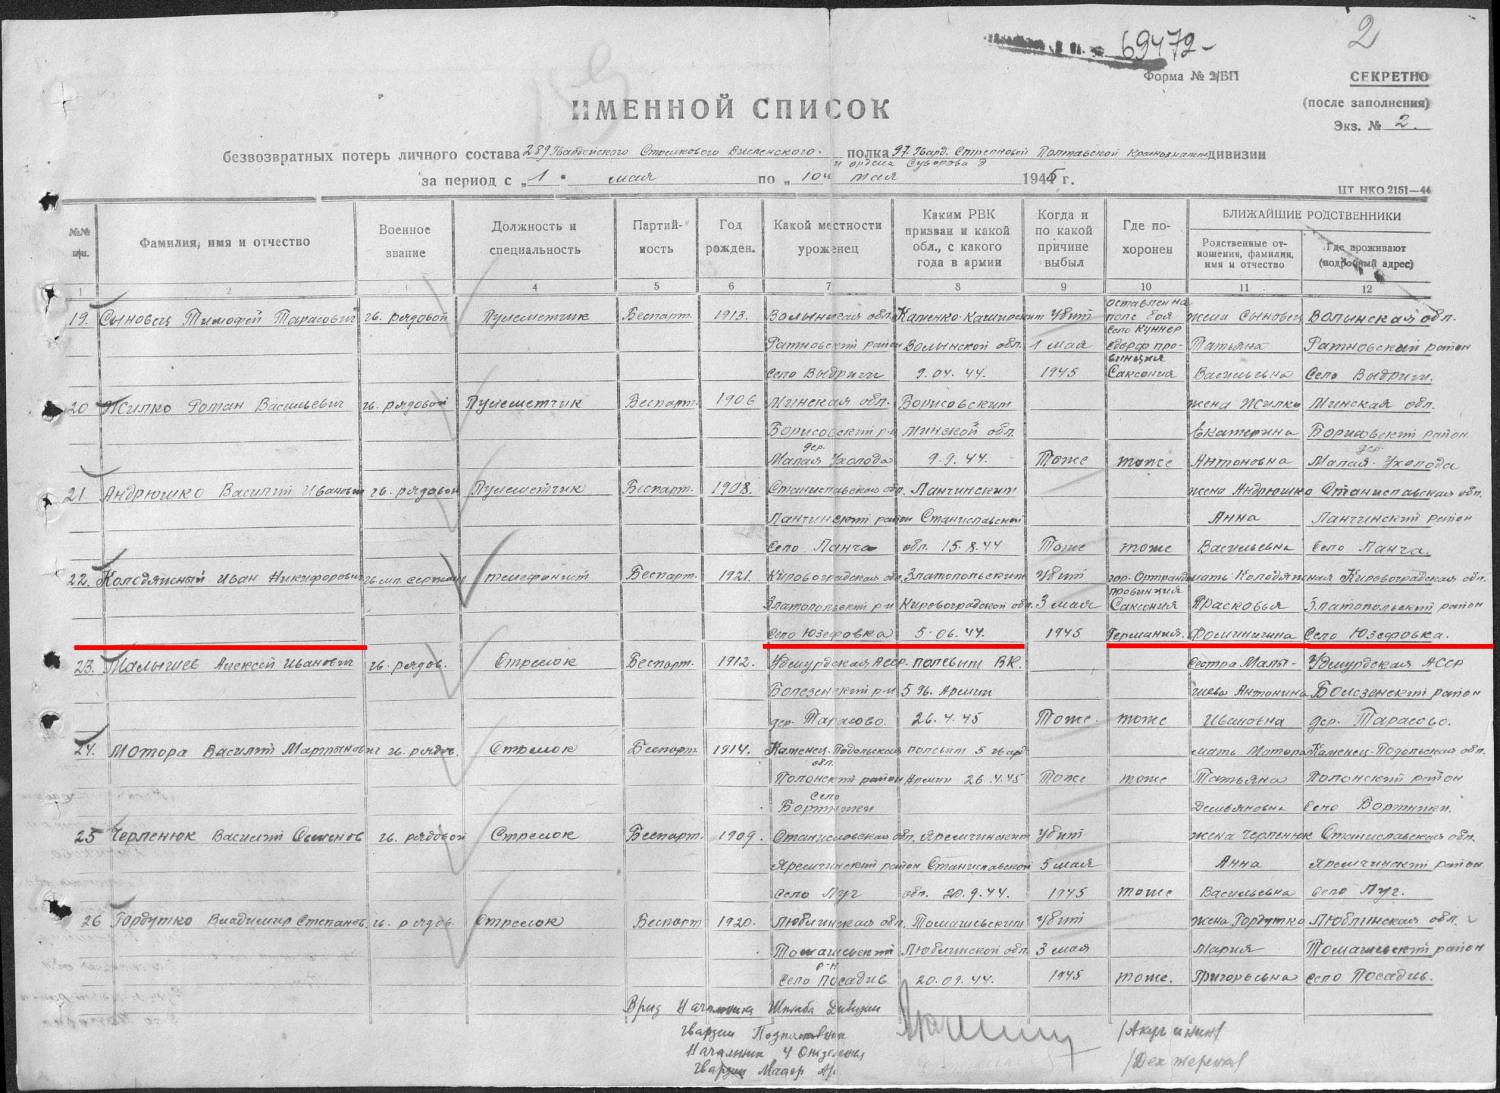 69472-
2
Форма № 2/БП
СЕКРЕТНО
(после заполнения)
Экз. № 2.
ИМЕННОЙ СПИСОК
безвозвратных потерь личного состава 289 Гвардейского Стрелкового Висленского полка 97 Гвард. Стрелковой Полтавской Краснознам. дивизии
и ордена Суворова
за период с „1" мая по „10" мая 1945 г.
ЦТ НКО 2151—44
№№ п/п.
Фамилия, имя и отчество
Военное звание
Должность и специальность
Партий-
ность
Год рожден.
Какой местности уроженец
Каким РВК призван и какой обл., с какого года в армии
Когда и по какой причине выбыл
Где по-
хоронен
БЛИЖАЙШИЕ РОДСТВЕННИКИ
Родственные от-
ношения, фамилия, имя и отчество
Где проживают (подробный адрес)
1 2 3 4 5 6 7 8 9 10 11 12
оставлен на
19. Сыновец Тимофей Тарасович гв. рядовой Пулеметчик Беспарт. 1913. Волынская обл. Камено-Каширским убит поле боя жена Сыновец Волынская обл.
село Куннер
Ратновский район Волынской обл. 1 мая про- Татьяна Ратновский район
винция
Село Выдричи 9.04.44. 1945 Саксония Васильевна Село Выдричи.
20 Жилко Роман Васильевич гв. рядовой Пулеметчик Беспарт. 1906 Минская обл. Борисовским жена Жилко Минская обл.
Борисовский р-н Минской обл. Екатерина Борисовский район
дер. дер.
Малая Ухолода 9.9.44. Тоже тоже Антоновна Малая-Ухолода
21 Андрюшко Василий Иванович гв. рядовой Пулеметчик Беспарт. 1908. Станиславская обл. Ланчинским жена Андрюшко Станиславская обл.
Ланчинский район Станиславской Анна Ланчинский район
Село Ланча обл. 15.8.44 Тоже тоже Васильевна Село Ланча.
22. Колодяжный Иван Никифорович гв. мл. сержант телефонист Беспарт. 1921. Кировоградская обл. Златопольским убит гор. Ортранд мать Колодяжная Кировоградская обл.
провинция
Златопольский р-н Кировоградской обл. 3 мая Саксония Прасковья Златопольский район
Село Юзефовка 5.06.44. 1945 Германия. Село Юзефовка.
23. Малышев Алексей Иванович гв. рядов. Стрелок Беспарт. 1912. Удмурдская АССР. полевым ВК. сестра Малы- Удмурдская АССР
р-н 5 Гв. Армии шева Антонина район
дер. Тарасово. 26.4.45 Тоже. тоже Ивановна дер. Тарасово.
24. Мотора Василий Мартынович гв. рядов. Стрелок Беспарт. 1914. Каменец-Подольская полевым 5 гвард мать Мотора Каменец-Подольская обл.
обл.
Полонский район Армии 26.4.45 Тоже тоже Татьяна Полонский район
село
Бортники Демьяновна Село Вортники.
25 Черленюк Василий гв. рядовой Стрелок Беспарт. 1909. Станиславская обл. Яремчинским убит жена Черленюк Станиславская обл.
Яремчинский район Станиславской 5 мая Анна Яремчинский район
Село Луг обл. 20.9.44. 1945 тоже Васильевна Село Луг.
26 Гордутко Владимир Степанов. гв. рядов. Стрелок Беспарт. 1920. Люблинская обл. Томашевским убит жена Гордутко Люблинская обл.
Томашевский Люблинской обл. 3 мая Мария Томашевский район
р-н
Село Посадив 20.09.44. 1945 тоже. Григорьевна Село Посадив.
Врид Начальника Штаба Дивизии
гвардии Подполковник
Начальник 4 Отделения
гвардии Майор